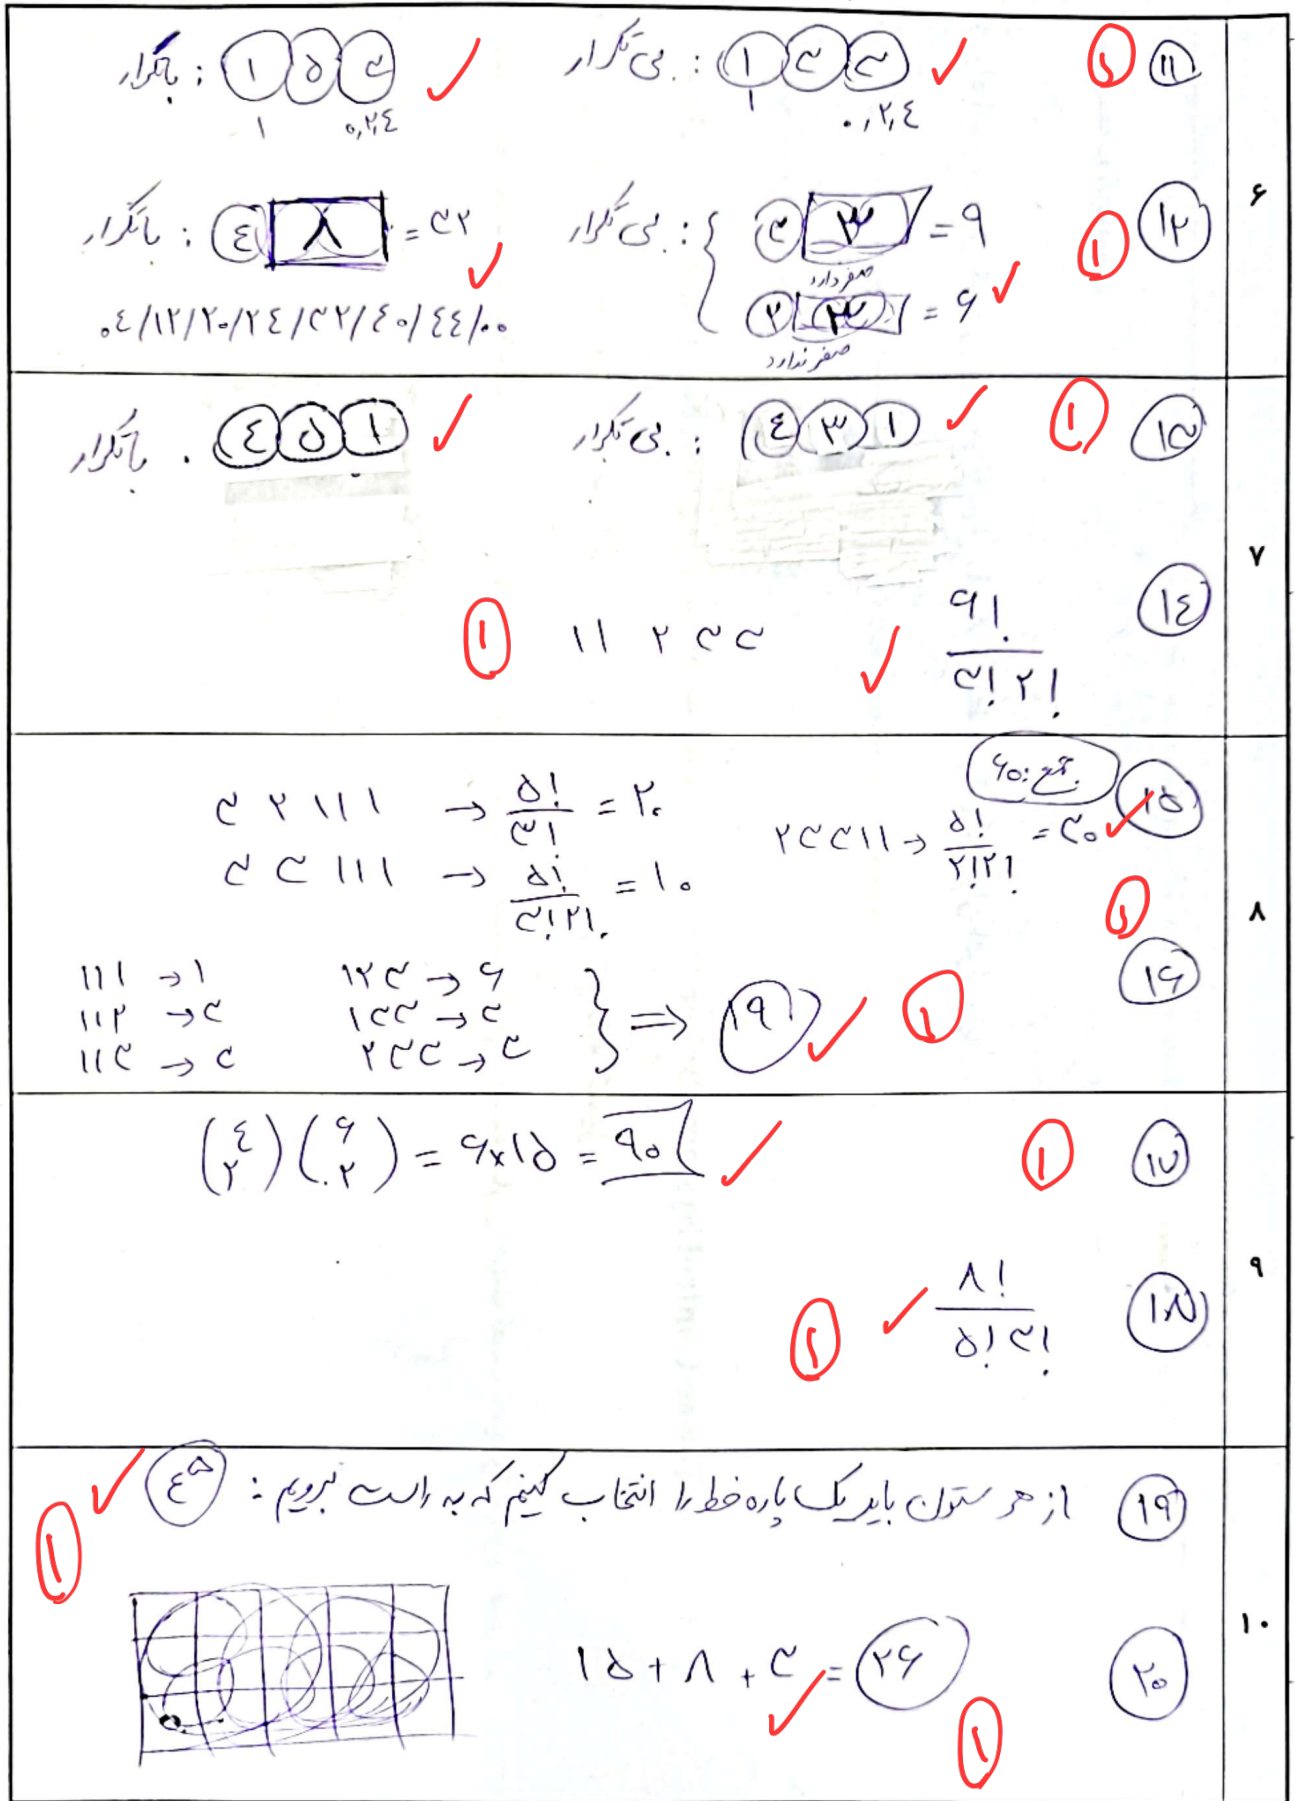 ۶
۱۱ ۱ بی تکرار : ۱ ۳ ۳
۱ ۰,۲,۴
با تکرار : ۱ ۵ ۳
۱ ۰,۲,۴
۱۲ ۱ بی تکرار :
۳ ۳ = ۹
صفر دارد
۲ ۳ = ۶
صفر ندارد
با تکرار : ۴ ۸ = ۳۲
۰۴/۱۲/۲۰/۲۴/۳۲/۴۰/۴۴/۰۰
۷
۱۳ ۱ بی تکرار : ۴ ۳ ۱
با تکرار : ۴ ۵ ۱
۱۴ ۶! / ۳! ۲!
۱۱ ۲ ۳۳۳ ۱
۸
۱۵ جمع: ۶۰
۲۳۳۱۱ → ۵! / ۲!۲! = ۳۰
۳ ۲ ۱۱۱ → ۵! / ۳! = ۲۰
۳ ۳ ۱۱۱ → ۵! / ۳!۲! = ۱۰
۱
۱۶
۱۱۱ → ۱ ۱۲۳ → ۶
۱۱۲ → ۳ ۱۳۳ → ۳
۱۱۳ → ۳ ۲۳۳ → ۳
⇒ ۱۹ ۱
۹
۱۷ ۱ (۴ ۲)(۶ ۲) = ۶×۱۵ = ۹۰
۱۸ ۸! / ۵! ۳! ۱
۱۰
۱۹ از هر ستون باید یک پاره خط را انتخاب کنیم که به راست برویم : ۴^۵
۱
۲۰ ۱۵ + ۸ + ۳ = ۲۶
۱